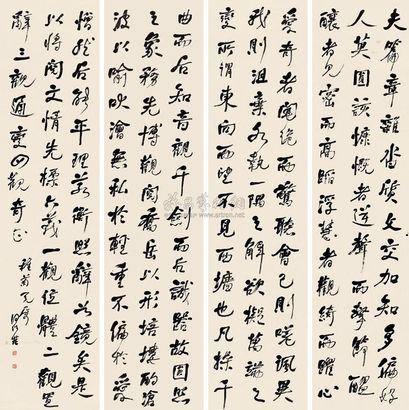 夫篇章雜沓質文交加知多偏好
人莫圓該慷慨者逆聲而擊節醖
釀者見密而高蹈浮慧者觀綺而躍心
愛奇者聞詭而驚聽會己則嗟諷異
我則沮棄各執一隅之解欲擬萬端之
變所謂東向而望不見西墻也凡操千
曲而后知音觀千劍而后識器故圓照
之象務先博觀閱喬岳以形培塿酌滄
波以喻畎澮無私於輕重不偏於愛
憎然后能平理若衡照辭如鏡矣是
以將閱文情先標六義一觀位體二觀置
辭三觀通變四觀奇正